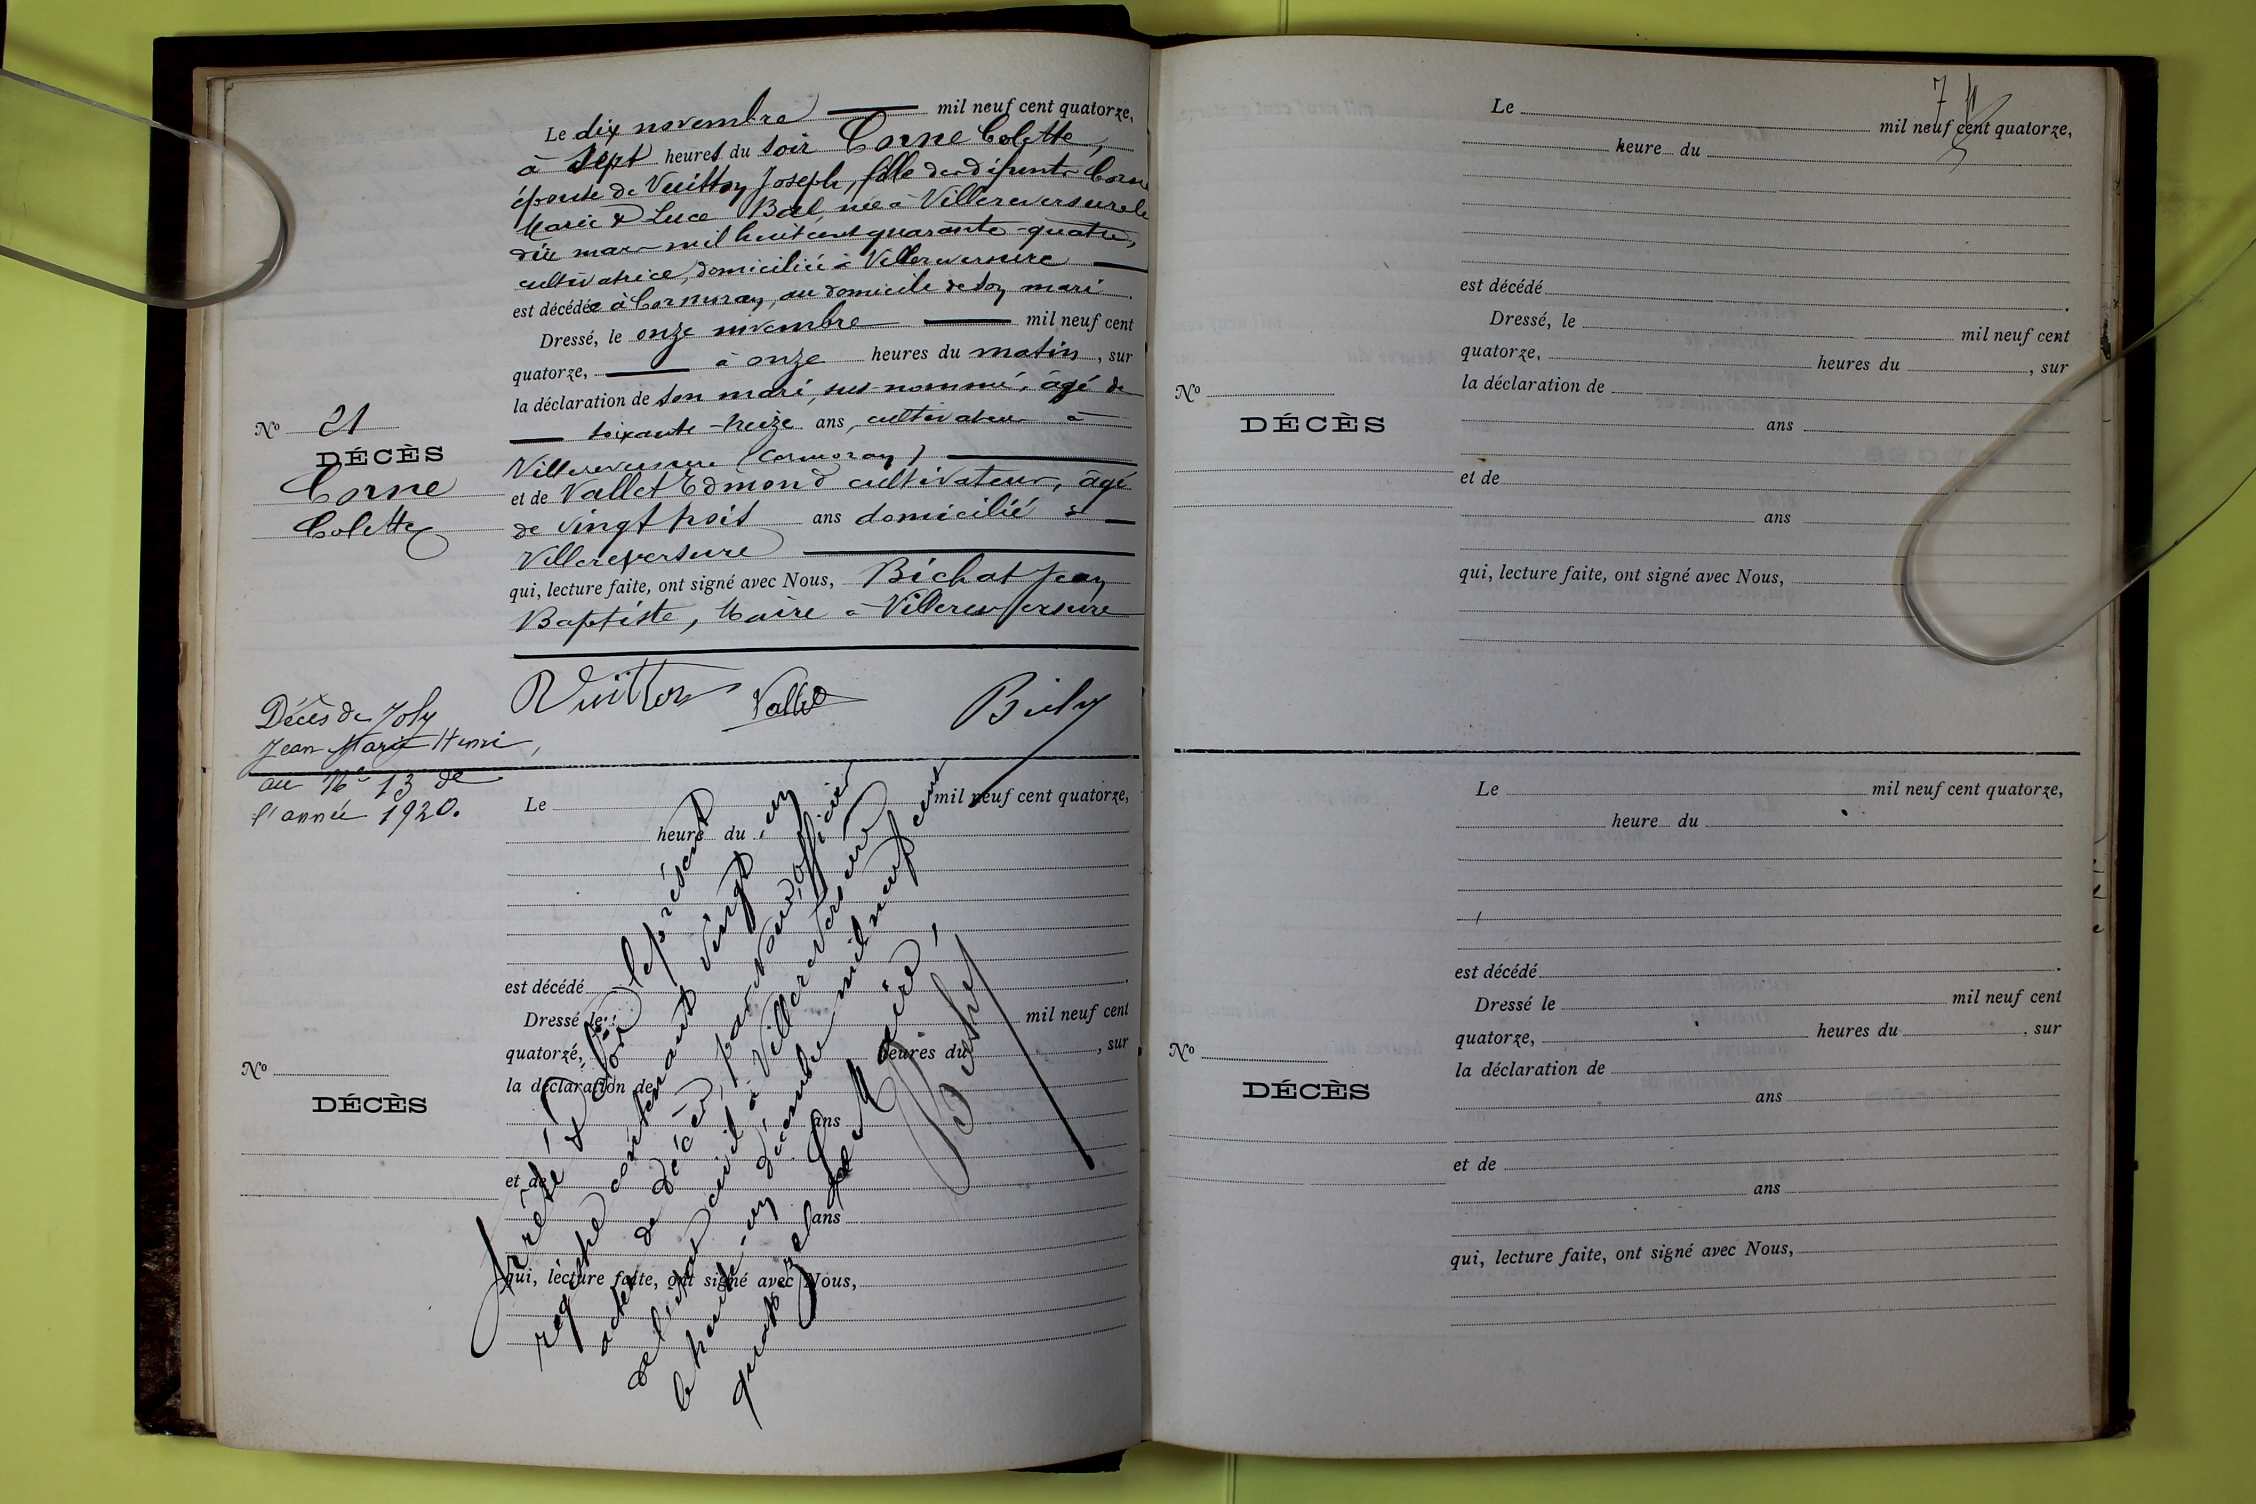 Le dix novembre mil neuf cent quatorze,
à sept heures du soir Corne Colette,
épouse de Vuitton Joseph, fille de défunts Corne
Marie & Luce Bal, née à Villereversure le
dix mars mil huit cent quarante-quatre,
cultivatrice, domiciliée à Villereversure
est décédée à Cormoray, au domicile de son mari.
Dressé, le onze novembre mil neuf cent
quatorze, à onze heures du matin, sur
la déclaration de son mari, sus-nommé, âgé de
soixante-treize ans, cultivateur à
Villereversure (Cormoray)
et de Vallet Edmond cultivateur, âgé
de vingt trois ans domicilié à
Villereversure
qui, lecture faite, ont signé avec Nous, Bichat Jean
Baptiste, Maire à Villereversure
Vuitton Vallet
No 21
DÉCÈS
Corne
Colette
Décès de Joly
Jean Marie Henri,
au No 13 de
l'année 1920.
Le mil neuf cent quatorze,
heure du
est décédé
Dressé le mil neuf cent
quatorze, heures du , sur
la déclaration de
ans
et de
ans
qui, lecture faite, ont signé avec Nous,
No
DÉCÈS
Arrêté & clos le présent
registre contenant vingt un
actes de décès, par Nous, officier
de l'état civil à Villereversure
le trente-un décembre mil neuf cent
quatorze
Le Maire,
7
Le mil neuf cent quatorze,
heure du
est décédé
Dressé, le mil neuf cent
quatorze, heures du , sur
la déclaration de
ans
et de
ans
qui, lecture faite, ont signé avec Nous,
No
DÉCÈS
Le mil neuf cent quatorze,
heure du
est décédé
Dressé le mil neuf cent
quatorze, heures du , sur
la déclaration de
ans
et de
ans
qui, lecture faite, ont signé avec Nous,
No
DÉCÈS